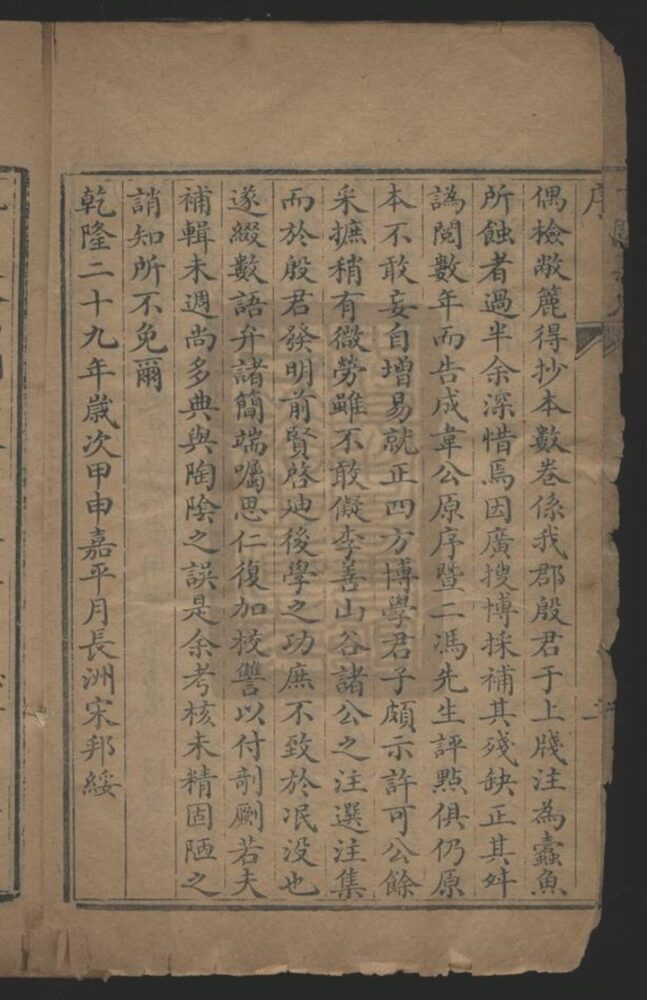 序
偶檢敝簏得抄本數卷係我郡殷君于上牋注為蠹魚
所蝕者過半余深惜焉因廣搜博採補其殘缺正其舛
譌閱數年而告成韋公原序暨二馮先生評點俱仍原
本不敢妄自增易就正四方博學君子頗示許可公餘
采摭稍有微勞雖不敢儗李善山谷諸公之注選注集
而於殷君發明前賢啓迪後學之功庶不致於冺没也
遂綴數語弁諸簡端囑思仁復加校讐以付剞劂若夫
補輯未週尚多典與陶陰之誤是余考核未精固陋之
誚知所不免爾
乾隆二十九年歲次甲申嘉平月長洲宋邦綏